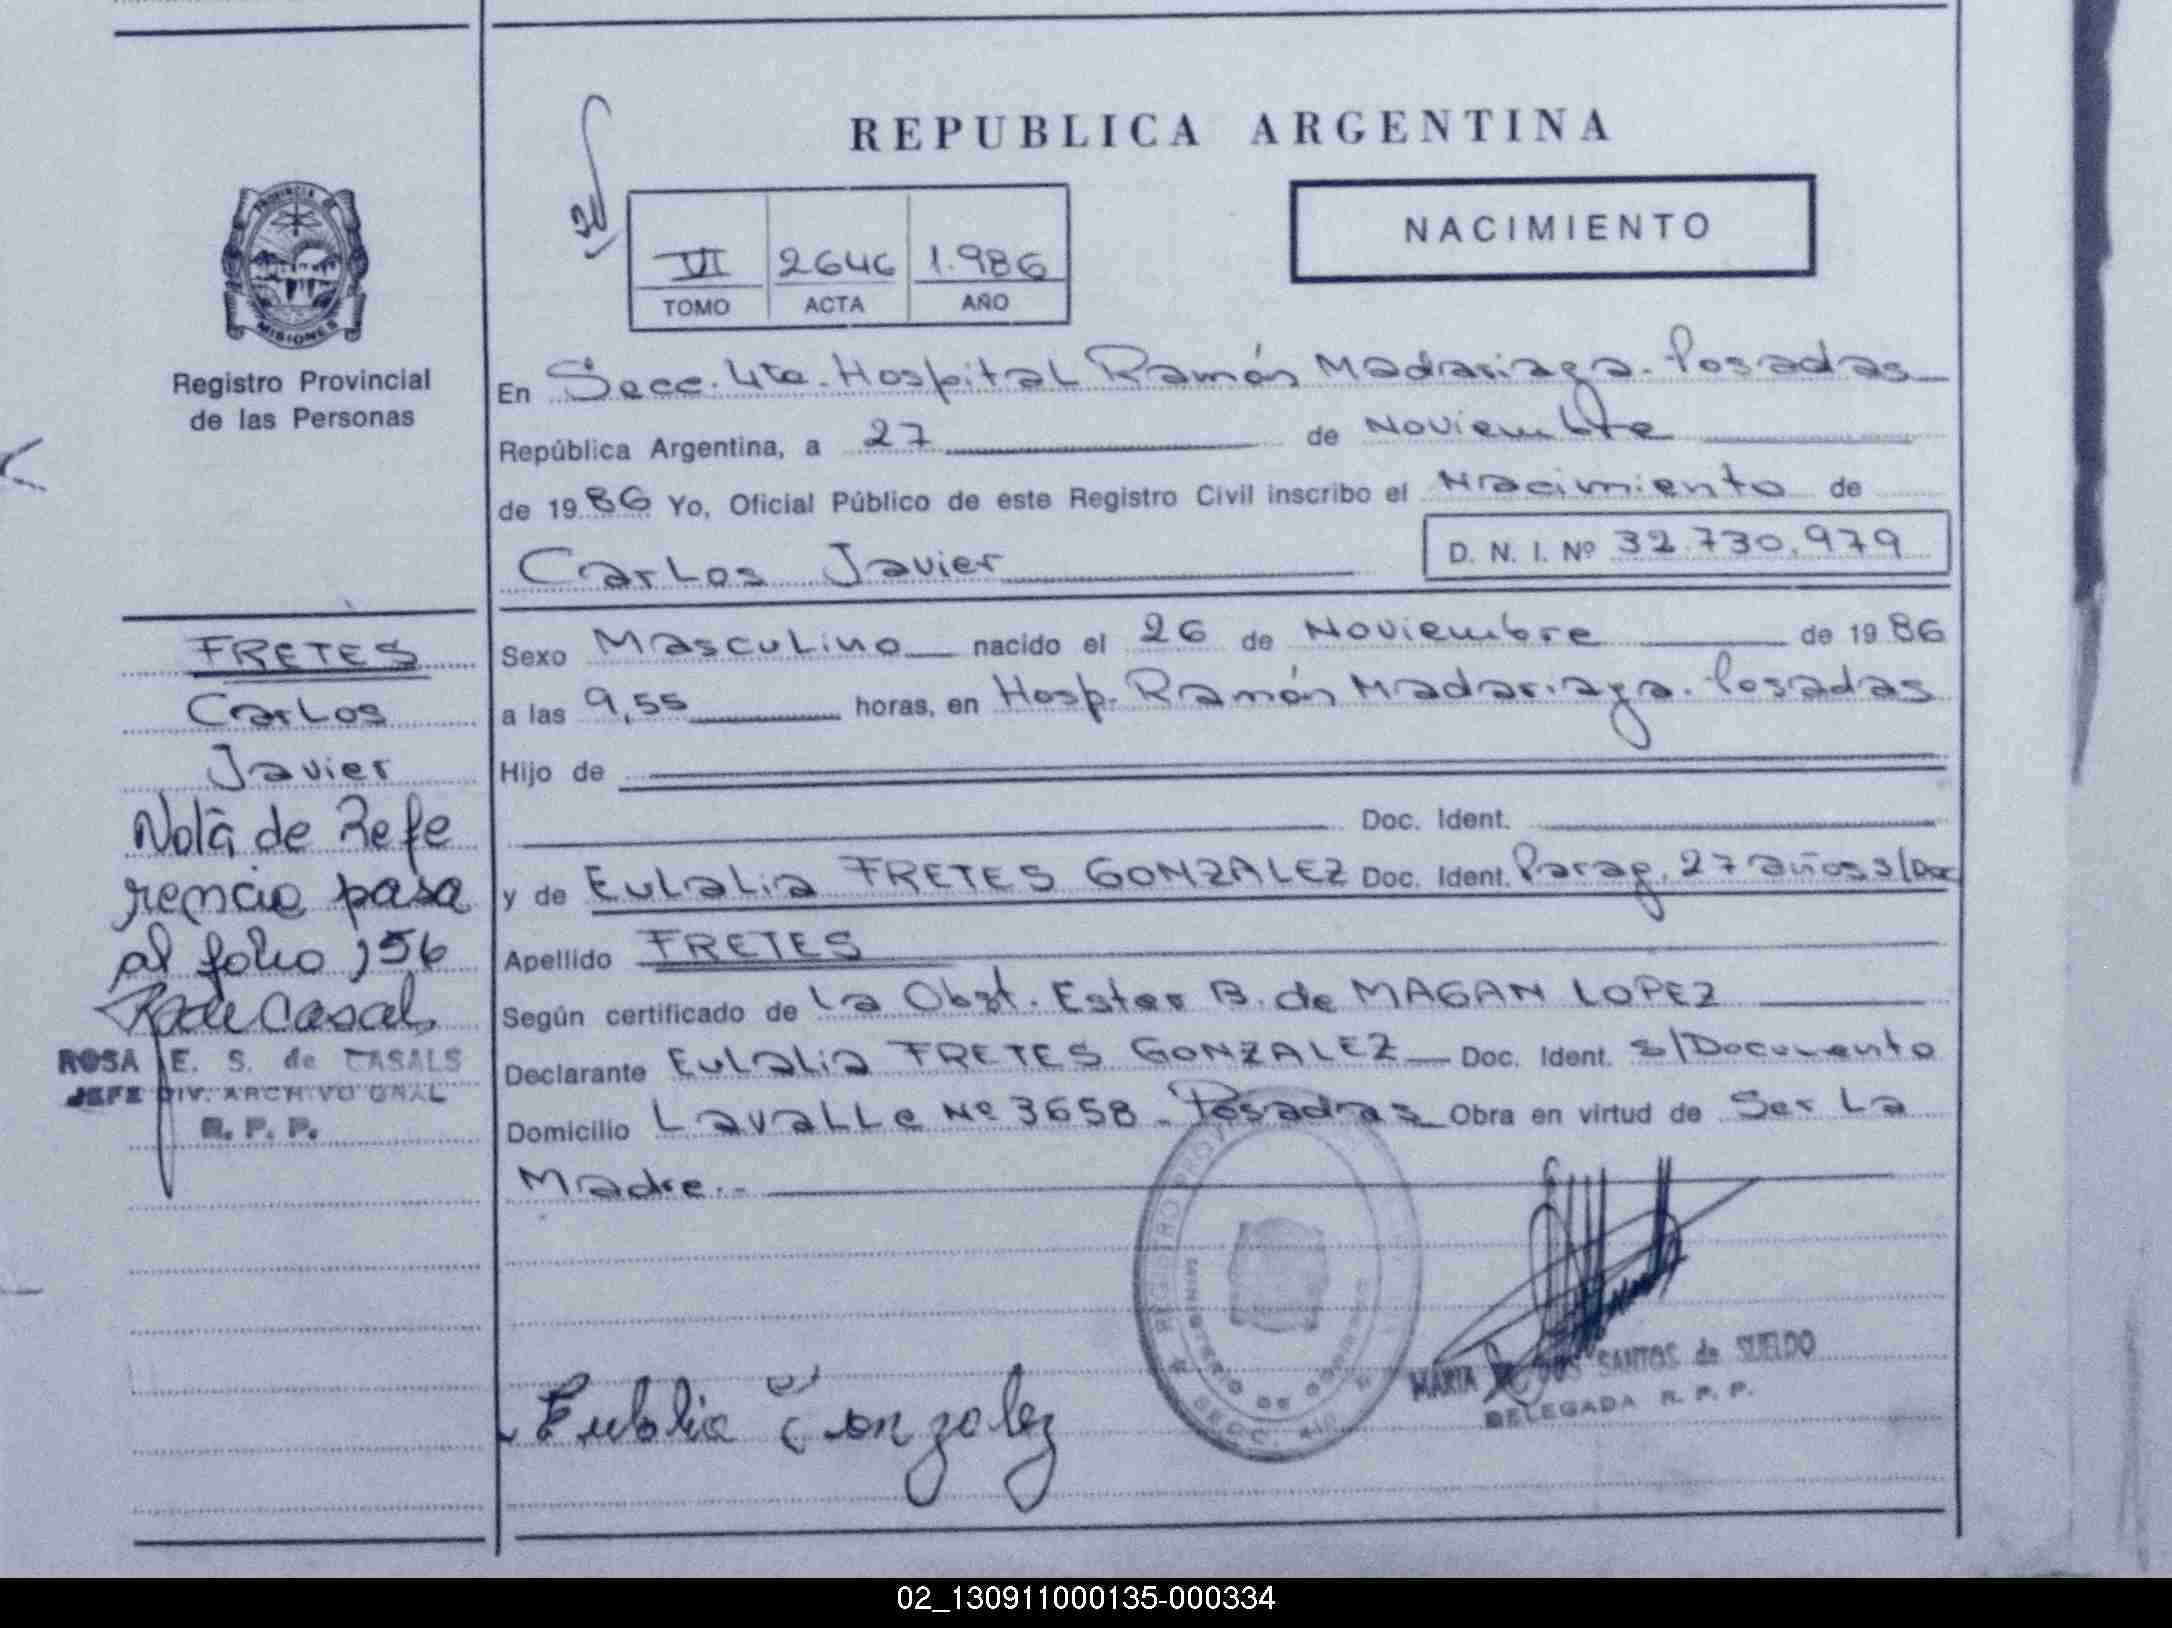 REPUBLICA ARGENTINA
NACIMIENTO
VI 2646 1.986
TOMO ACTA AÑO
PROVINCIA DE
MISIONES
Registro Provincial
de las Personas
En Secc. 4ta. Hospital Ramón Madariaga. Posadas
República Argentina, a 27 de Noviembre
de 1986 Yo, Oficial Público de este Registro Civil inscribo el Nacimiento de
Carlos Javier D. N. I. Nº 32.730.979
FRETES
Carlos
Javier
Nota de Refe
rencia pasa
al folio 156
R de Casals
ROSA E. S. de CASALS
JEFE DIV. ARCHIVO GRAL
R. P. P.
Sexo Masculino nacido el 26 de Noviembre de 1986
a las 9,55 horas, en Hosp. Ramón Madariaga. Posadas
Hijo de
Doc. Ident.
y de Eulalia FRETES GONZALEZ Doc. Ident. Parag. 27 años s/Doc
Apellido FRETES
Según certificado de La Obst. Ester B. de MAGAN LOPEZ
Declarante Eulalia FRETES GONZALEZ Doc. Ident. s/Documento
Domicilio Lavalle Nº 3658 - Posadas Obra en virtud de Ser La
Madre.-
REGISTRO
MINISTERIO DE GOBIERNO
SECC. 4ta
MARIA DOS SANTOS de SUELDO
DELEGADA R. P. P.
Eulalia Gonzalez
02_130911000135-000334